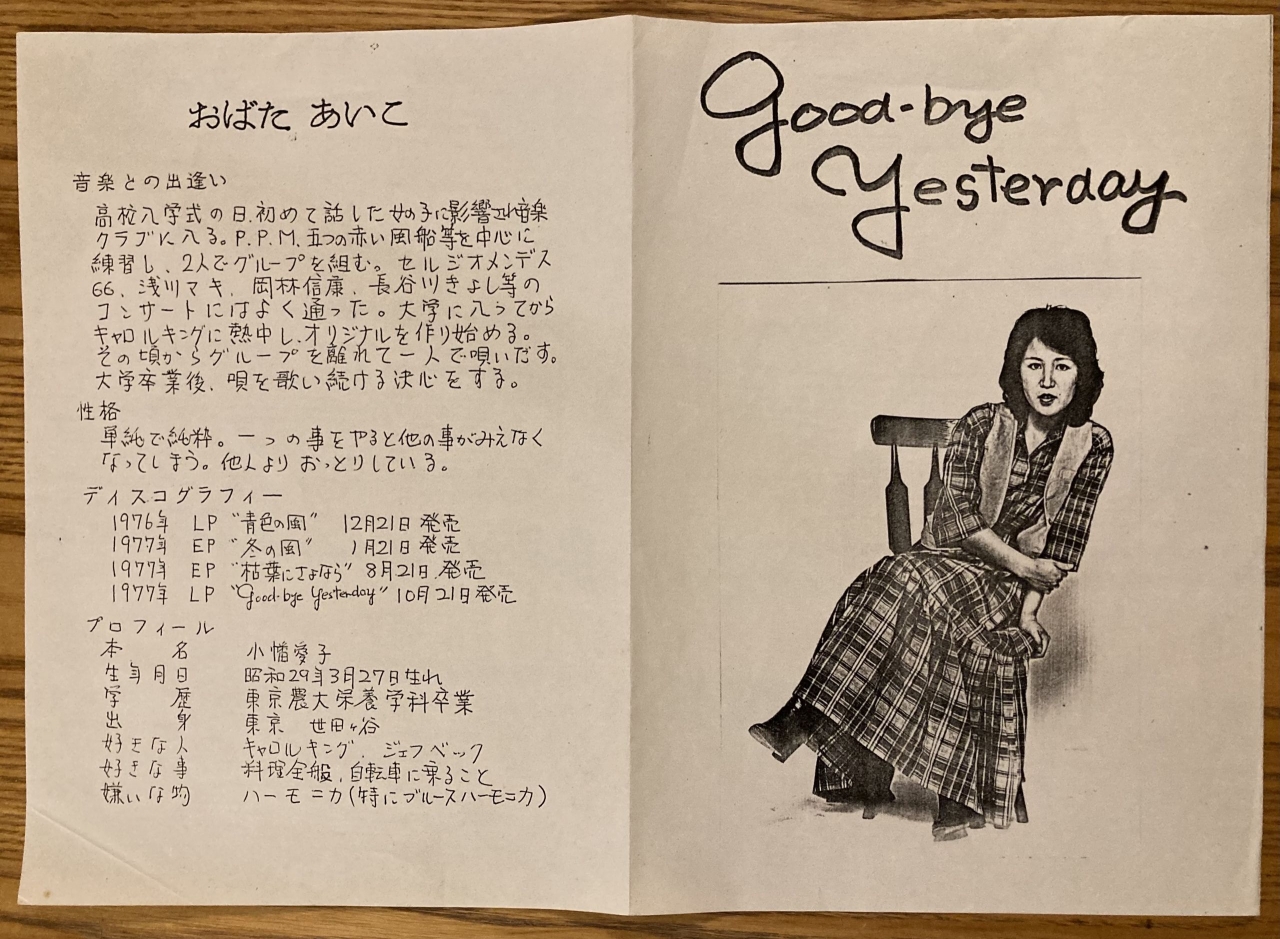 おばた あいこ
音楽との出逢い
高校入学式の日、初めて話した女の子に影響され音楽
クラブに入る。P.P.M.五つの赤い風船等を中心に
練習し、2人でグループを組む。セルジオメンデス
66、浅川マキ、岡林信康、長谷川きよし等の
コンサートにはよく通った。大学に入ってから
キャロルキングに熱中し、オリジナルを作り始める。
その頃からグループを離れて一人で唄いだす。
大学卒業後、唄を歌い続ける決心をする。
性格
単純で純粋。一つの事をやると他の事がみえなく
なってしまう。他人よりおっとりしている。
ディスコグラフィー
1976年 LP "青色の風" 12月21日発売
1977年 EP "冬の風" 1月21日発売
1977年 EP "枯葉にさよなら" 8月21日発売
1977年 LP "Good-bye Yesterday" 10月21日発売
プロフィール
本名 小幡愛子
生年月日 昭和29年3月27日生れ
学歴 東京農大栄養学科卒業
出身 東京 世田ヶ谷
好きな人 キャロルキング、ジェフベック
好きな事 料理全般、自転車に乗ること
嫌いな物 ハーモニカ(特にブルースハーモニカ)
Good-bye
Yesterday